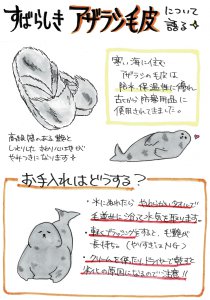 すばらしき アザラシ毛皮 について語る
寒い海に住む
アザラシの毛皮は
防水・保温性に優れ
古くから防寒用品に
使用されてきました。
高級感のある艶と
しっとりした さわり心地が
やみつきになります
お手入れはどうする？
・水にぬれたら やわらかいタオルで
毛並みに沿って水気を取ります。
・軽くブラッシングすると、毛艶が
長持ち。（やりすぎはNG）
・クリームを使ったり、ドライヤーで乾かすと
劣化の原因になるので注意!!